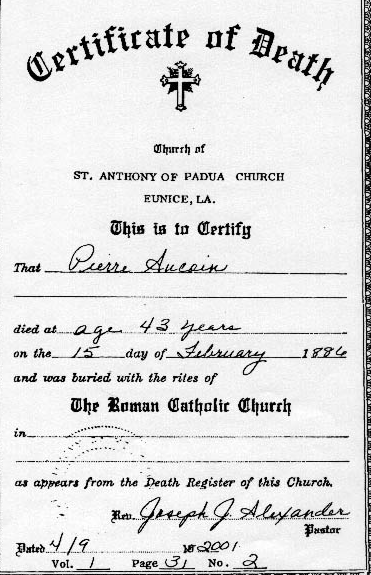 Certificate of Death
Church of
ST. ANTHONY OF PADUA CHURCH
EUNICE, LA.
This is to Certify
That Pierre Aucoin
died at age 43 years
on the 15 day of February 1886
and was buried with the rites of
The Roman Catholic Church
in
as appears from the Death Register of this Church.
Rev. Joseph J. Alexander
Pastor
Dated 4/9 2001
Vol. 1 Page 31 No. 2